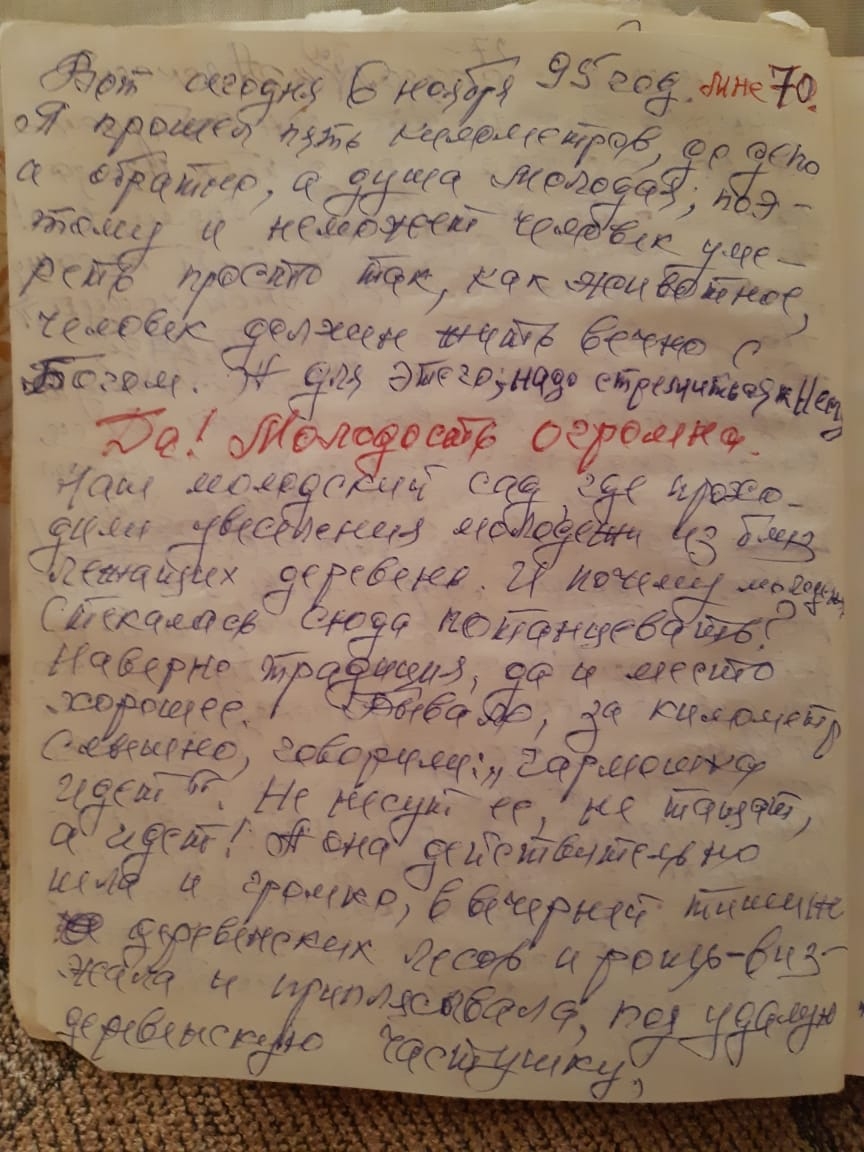 Вот сегодня 6 ноября 95 год. мне 70.
Я прошел пять километров, до депо
а обратно, а душа молодая; поэ-
тому и неможет человек уме-
реть просто так, как животное,
человек должен жить вечно с
Богом. А для этого; надо стремиться к Нему
Да! Молодость огромна.
Наш молодский сад где прохо-
дили увеселения молодежи из близ
лежащих деревень. И почему молодежь
стекалась сюда потанцевать?
Наверно традиция, да и место
хорошее. Бывало, за километр
слышно, говорили: „гармошка
идет". Не несут ее, не тащат,
а идет! А она действительно
шла и громко, в вечерней тишине
деревенских лесов и рощь-виз-
жала и приплясывала, под удалую
деревенскую частушку,